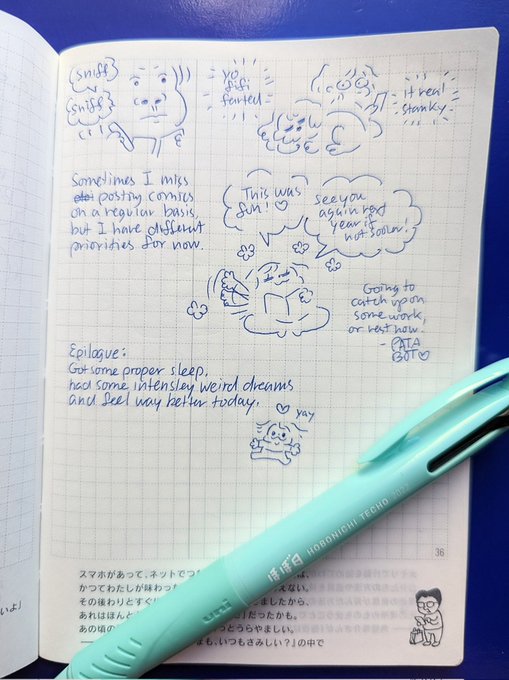 sniff
sniff
yo
fifi
farted
it real
stanky
Sometimes I miss
posting comics
on a regular basis,
but I have different
priorities for now.
This was
fun!
See you
again next
year if
not sooner!
Going to
catch up on
some work,
or rest now.
- PATA
BOT
Epilogue:
Got some proper sleep,
had some intensley weird dreams
and feel way better today.
yay
36
スマホがあって、ネットでつ
かつてわたしが味わった えない。
その後わりとすぐ しましたから、
あれはほんと だったかも。
あの頃の っとうらやましい。
も、いつもさみしい？』の中で
いよ」
uni ほぼ日 HOBONICHI TECHO